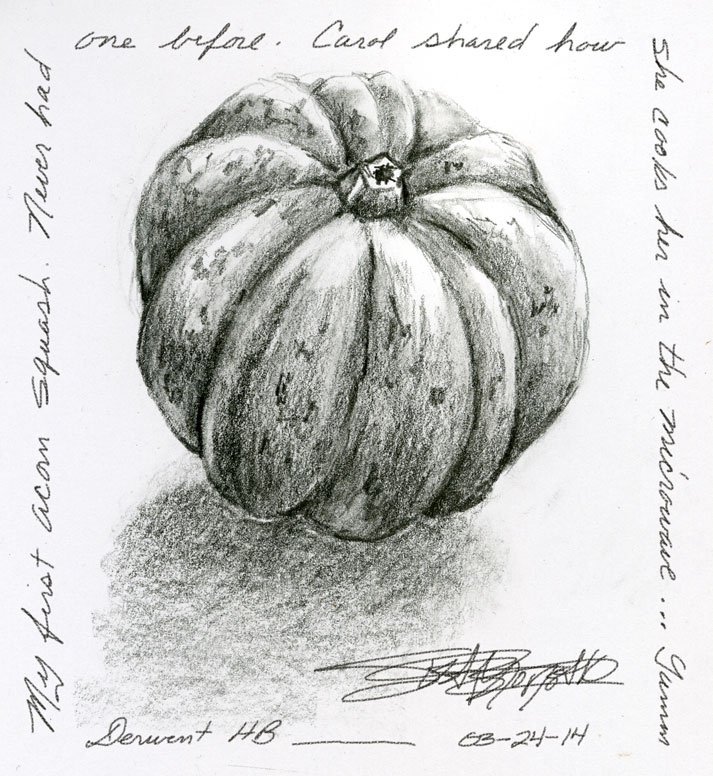 My first acorn squash. Never had
one before. Carol shared how
she cooks her in the microwave... Yumm
Derwent HB
03-24-14